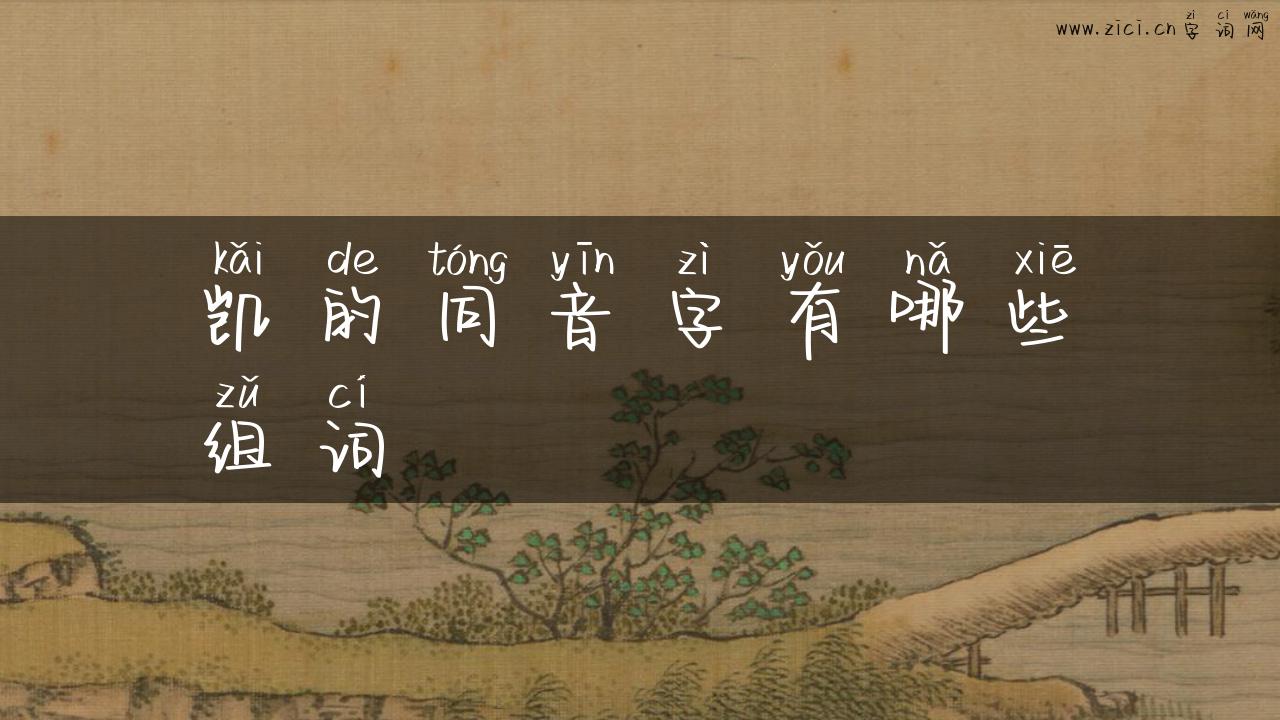 zì cí wǎng
www.zici.cn 字词网
kǎi de tóng yīn zì yǒu nǎ xiē
凯的同音字有哪些
zǔ cí
组词